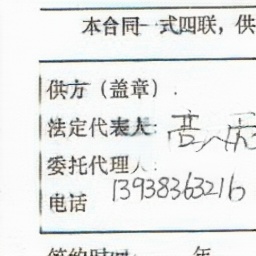 本合同一式四联，供
供方（盖章）.
法定代表人：高
委托代理人：
电话 13938363216
签约时间： 年